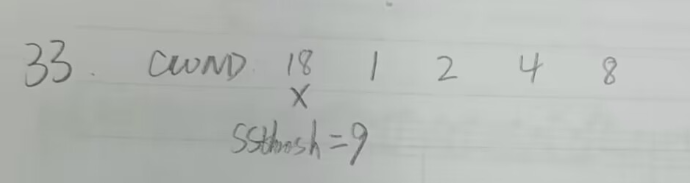 33. CWND 18 1 2 4 8
X
ssthresh=9